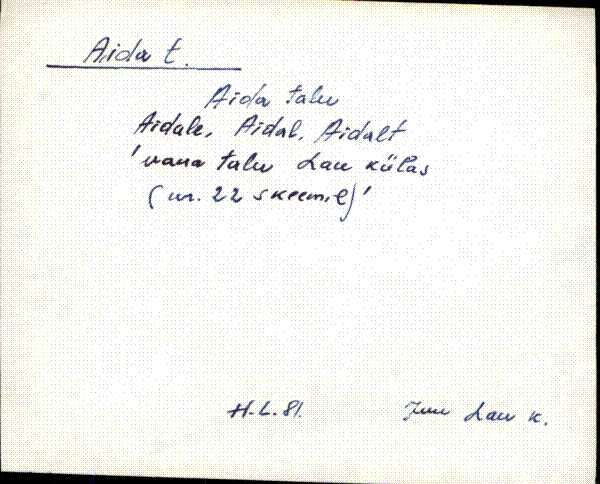 Aida t.
Aida talu
Aidale, Aidal, Aidalt
'vana talu Lau külas
(nr. 22 skeemil)'
H.L. 81. Juu Lau k.